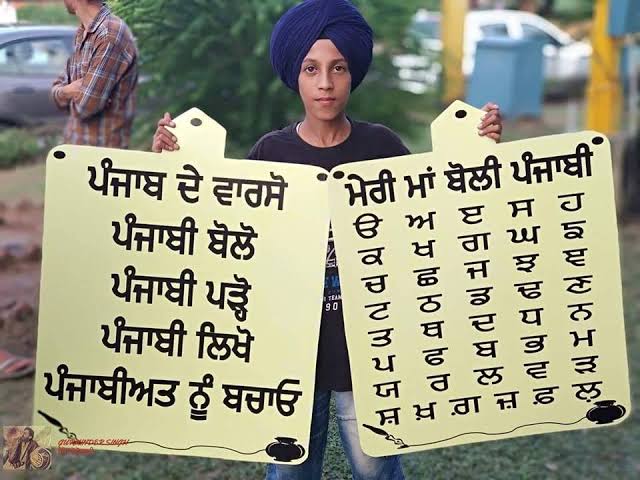 ਪੰਜਾਬ ਦੇ ਵਾਰਸੋ
ਪੰਜਾਬੀ ਬੋਲੋ
ਪੰਜਾਬੀ ਪੜ੍ਹੋ
ਪੰਜਾਬੀ ਲਿਖੋ
ਪੰਜਾਬੀਅਤ ਨੂੰ ਬਚਾਓ
ਮੇਰੀ ਮਾਂ ਬੋਲੀ ਪੰਜਾਬੀ
ੳ ਅ ੲ ਸ ਹ
ਕ ਖ ਗ ਘ ਙ
ਚ ਛ ਜ ਝ ਞ
ਟ ਠ ਡ ਢ ਣ
ਤ ਥ ਦ ਧ ਨ
ਪ ਫ ਬ ਭ ਮ
ਯ ਰ ਲ ਵ ੜ
ਸ਼ ਖ਼ ਗ਼ ਜ਼ ਫ਼ ਲ਼
TEAM
90
GURWINDER SINGH